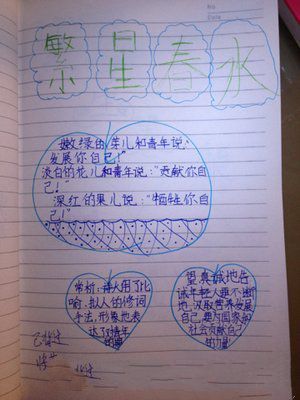 No
Date
繁星春水
嫩绿的芽儿和青年说:
发展你自己!"
淡白的花儿和青年说:"贡献你自
己!"
深红的果儿说:"牺牲你自
己!"
赏析:诗人用了比
喻、拟人的修词
手法,形象地表
达了对青年
的
望,真诚地告
诫年轻人要不断
地汲取营养发展
自己,要为国家和
社会贡献自己
的力量!